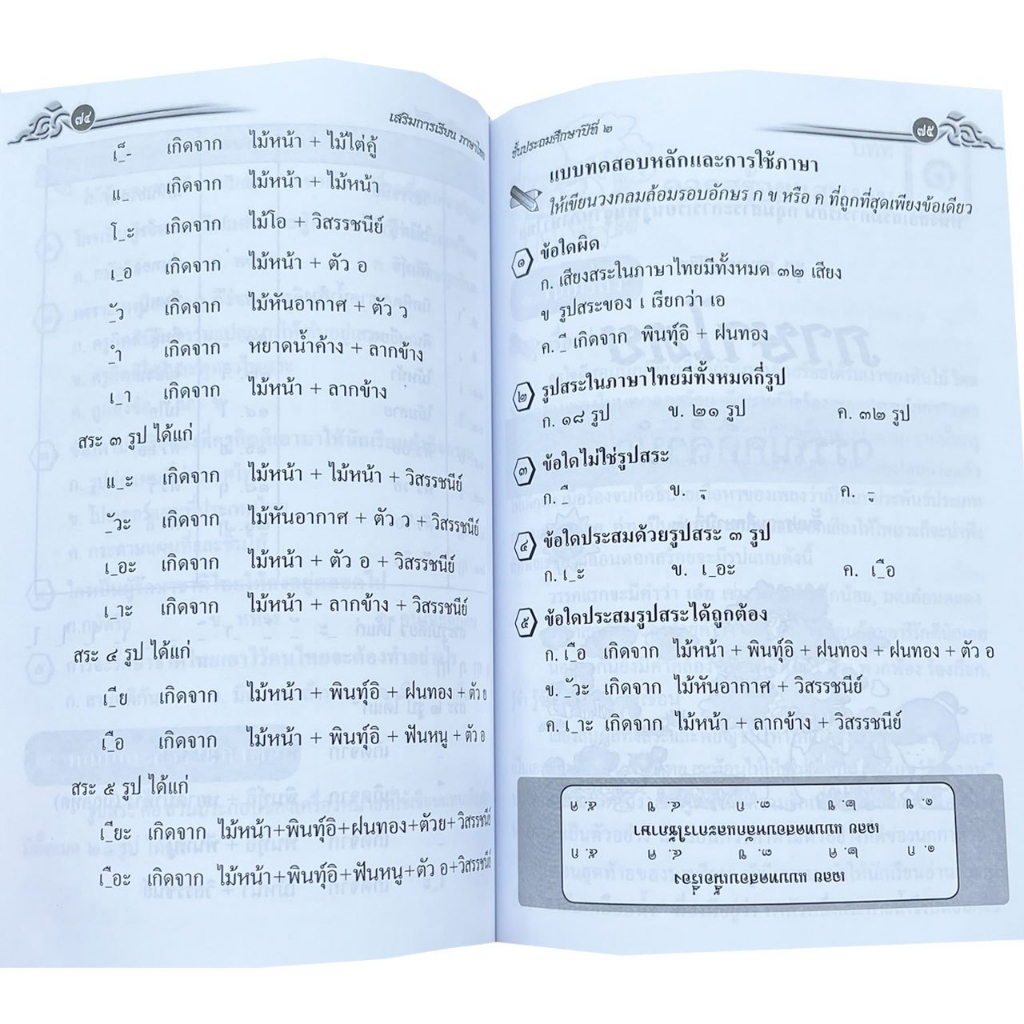 ๗๔
เสริมการเรียน ภาษาไทย
เ_็- เกิดจาก ไม้หน้า + ไม้ไต่คู้
แ_ เกิดจาก ไม้หน้า + ไม้หน้า
โ_ะ เกิดจาก ไม้โอ + วิสรรชนีย์
เ_อ เกิดจาก ไม้หน้า + ตัว อ
_ัว เกิดจาก ไม้หันอากาศ + ตัว ว
_ำ เกิดจาก หยาดน้ำค้าง + ลากข้าง
เ_า เกิดจาก ไม้หน้า + ลากข้าง
สระ ๓ รูป ได้แก่
แ_ะ เกิดจาก ไม้หน้า + ไม้หน้า + วิสรรชนีย์
_ัวะ เกิดจาก ไม้หันอากาศ + ตัว ว + วิสรรชนีย์
เ_อะ เกิดจาก ไม้หน้า + ตัว อ + วิสรรชนีย์
เ_าะ เกิดจาก ไม้หน้า + ลากข้าง + วิสรรชนีย์
สระ ๔ รูป ได้แก่
เ_ีย เกิดจาก ไม้หน้า + พินทุ์อิ + ฝนทอง + ตัว ย
เ_ือ เกิดจาก ไม้หน้า + พินทุ์อิ + ฟันหนู + ตัว อ
สระ ๕ รูป ได้แก่
เ_ียะ เกิดจาก ไม้หน้า+พินทุ์อิ+ฝนทอง+ตัวย+วิสรรชนีย์
เ_ือะ เกิดจาก ไม้หน้า+พินทุ์อิ+ฟันหนู+ตัว อ+วิสรรชนีย์
ชั้นประถมศึกษาปีที่ ๒
๗๕
แบบทดสอบหลักและการใช้ภาษา
ให้เขียนวงกลมล้อมรอบอักษร ก ข หรือ ค ที่ถูกที่สุดเพียงข้อเดียว
๑ ข้อใดผิด
ก. เสียงสระในภาษาไทยมีทั้งหมด ๓๒ เสียง
ข รูปสระของ เ เรียกว่า เอ
ค. _ี เกิดจาก พินทุ์อิ + ฝนทอง
๒ รูปสระในภาษาไทยมีทั้งหมดกี่รูป
ก. ๑๘ รูป ข. ๒๑ รูป ค. ๓๒ รูป
๓ ข้อใดไม่ใช่รูปสระ
ก. ข. ค.
๔ ข้อใดประสมด้วยรูปสระ ๓ รูป
ก. เ_ะ ข. เ_อะ ค. เ_ือ
๕ ข้อใดประสมรูปสระได้ถูกต้อง
ก. เ_ือ เกิดจาก ไม้หน้า + พินทุ์อิ + ฝนทอง + ฝนทอง + ตัว อ
ข. _ัวะ เกิดจาก ไม้หันอากาศ + วิสรรชนีย์
ค. เ_าะ เกิดจาก ไม้หน้า + ลากข้าง + วิสรรชนีย์
เฉลย แบบทดสอบเนื้อเรื่อง
๑. ก ๒. ค ๓. ข ๔. ค ๕. ก
เฉลย แบบทดสอบหลักและการใช้ภาษา
๑. ข ๒. ข ๓. ก ๔. ข ๕. ค